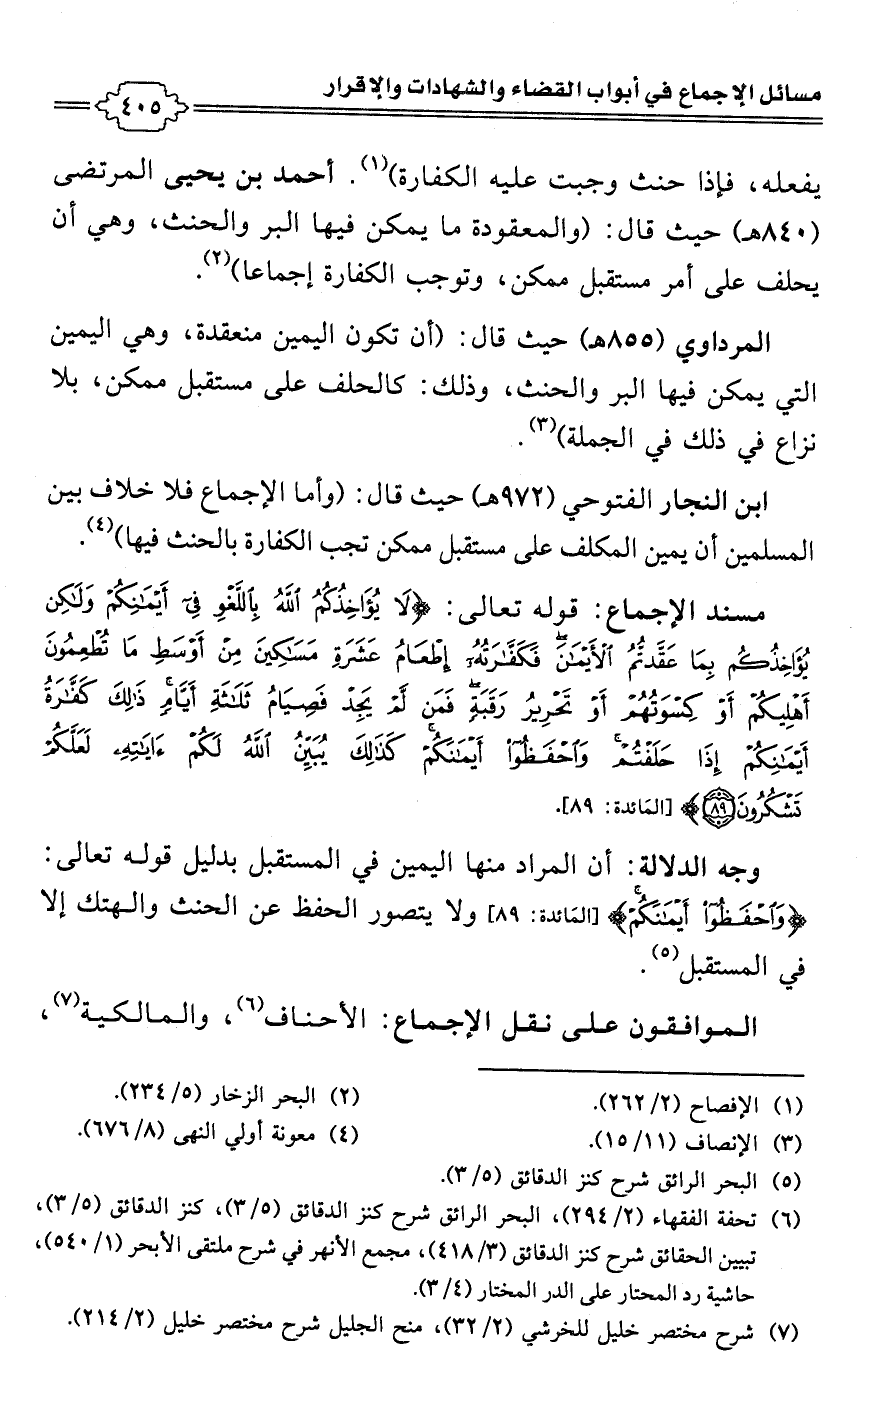 مسائل الإجماع في أبواب القضاء والشهادات والإقرار
٤٠٥
يفعله، فإذا حنث وجبت عليه الكفارة)(١). أحمد بن يحيى المرتضى
(٨٤٠هـ) حيث قال: (والمعقودة ما يمكن فيها البر والحنث، وهي أن
يحلف على أمر مستقبل ممكن، وتوجب الكفارة إجماعا)(٢).
المرداوي (٨٥٥هـ) حيث قال: (أن تكون اليمين منعقدة، وهي اليمين
التي يمكن فيها البر والحنث، وذلك: كالحلف على مستقبل ممكن، بلا
نزاع في ذلك في الجملة)(٣).
ابن النجار الفتوحي (٩٧٢هـ) حيث قال: (وأما الإجماع فلا خلاف بين
المسلمين أن يمين المكلف على مستقبل ممكن تجب الكفارة بالحنث فيها)(٤).
مسند الإجماع: قوله تعالى: ﴿لَا يُؤَاخِذُكُمُ ٱللَّهُ بِٱللَّغۡوِ فِيٓ أَيۡمَٰنِكُمۡ وَلَٰكِن
يُؤَاخِذُكُم بِمَا عَقَّدتُّمُ ٱلۡأَيۡمَٰنَۖ فَكَفَّٰرَتُهُۥٓ إِطۡعَامُ عَشَرَةِ مَسَٰكِينَ مِنۡ أَوۡسَطِ مَا تُطۡعِمُونَ
أَهۡلِيكُمۡ أَوۡ كِسۡوَتُهُمۡ أَوۡ تَحۡرِيرُ رَقَبَةٖۖ فَمَن لَّمۡ يَجِدۡ فَصِيَامُ ثَلَٰثَةِ أَيَّامٖۚ ذَٰلِكَ كَفَّٰرَةُ
أَيۡمَٰنِكُمۡ إِذَا حَلَفۡتُمۡۚ وَٱحۡفَظُوٓاْ أَيۡمَٰنَكُمۡۚ كَذَٰلِكَ يُبَيِّنُ ٱللَّهُ لَكُمۡ ءَايَٰتِهِۦ لَعَلَّكُمۡ
تَشۡكُرُونَ ٨٩﴾ [المَائدة: ٨٩].
وجه الدلالة: أن المراد منها اليمين في المستقبل بدليل قوله تعالى:
﴿وَٱحۡفَظُوٓاْ أَيۡمَٰنَكُمۡۚ﴾ [المَائدة: ٨٩] ولا يتصور الحفظ عن الحنث والهتك إلا
في المستقبل(٥).
الموافقون على نقل الإجماع: الأحناف(٦)، والمالكية(٧)،
(١) الإفصاح (٢/ ٢٦٢). (٢) البحر الزخار (٥/ ٢٣٤).
(٣) الإنصاف (١١/ ١٥). (٤) معونة أولي النهى (٨/ ٦٧٦).
(٥) البحر الرائق شرح كنز الدقائق (٥/ ٣).
(٦) تحفة الفقهاء (٢/ ٢٩٤)، البحر الرائق شرح كنز الدقائق (٥/ ٣)، كنز الدقائق (٥/ ٣)،
تبيين الحقائق شرح كنز الدقائق (٣/ ٤١٨)، مجمع الأنهر في شرح ملتقى الأبحر (١/ ٥٤٠)،
حاشية رد المحتار على الدر المختار (٤/ ٣).
(٧) شرح مختصر خليل للخرشي (٢/ ٣٢)، منح الجليل شرح مختصر خليل (٢/ ٢١٤).